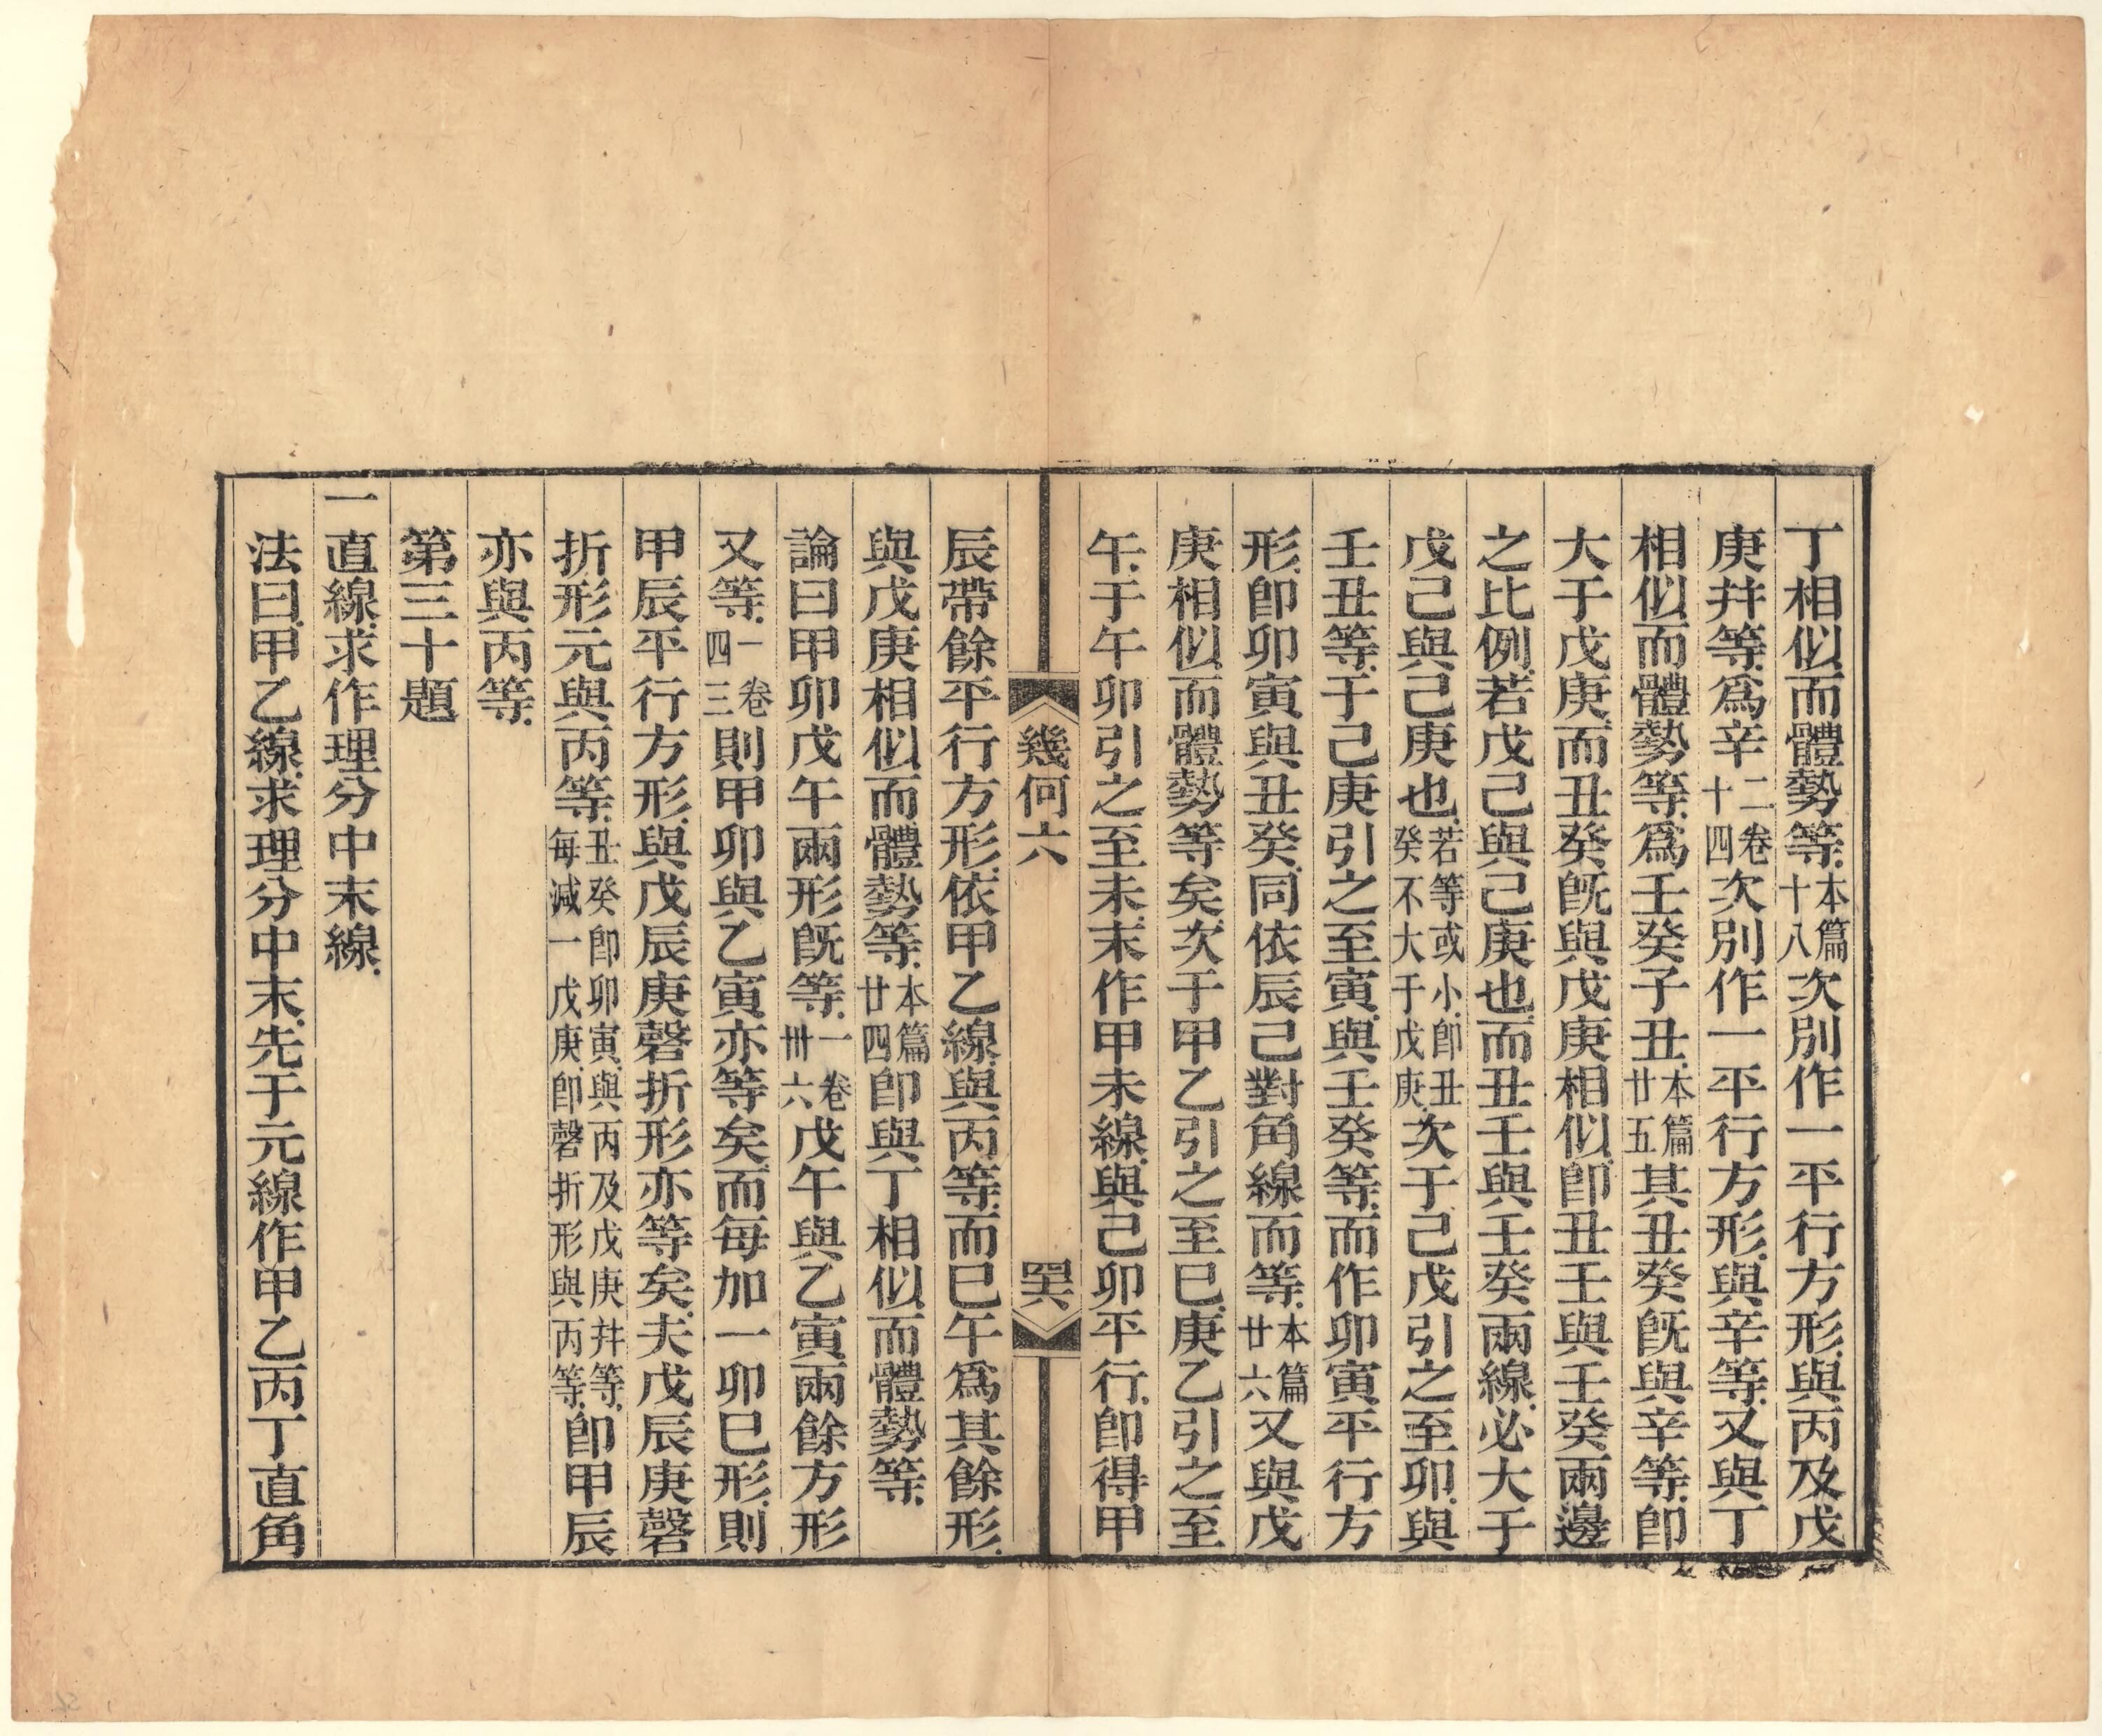 丁相似而體勢等本篇十八次別作一平行方形與丙及戊
庚幷等爲辛二卷十四次別作一平行方形與辛等又與丁
相似而體勢等爲壬癸子丑本篇廿五其丑癸旣與辛等卽
大于戊庚而丑癸旣與戊庚相似卽丑壬與壬癸兩邊
之比例若戊己與己庚也而丑壬與壬癸兩線必大于
戊己與己庚也若等或小卽丑癸不大于戊庚次于己戊引之至卯與
壬丑等于己庚引之至寅與壬癸等而作卯寅平行方
形卽卯寅與丑癸同依辰己對角線而等本篇廿六又與戊
庚相似而體勢等矣次于甲乙引之至巳庚乙引之至
午于午卯引之至未末作甲未線與己卯平行卽得甲
幾何六
四六
辰帶餘平行方形依甲乙線與丙等而巳午爲其餘形
與戊庚相似而體勢等本篇廿四卽與丁相似而體勢等
論曰甲卯戊午兩形旣等一卷卅六戊午與乙寅兩餘方形
又等一卷四三則甲卯與乙寅亦等矣而每加一卯巳形則
甲辰平行方形與戊辰庚磬折形亦等矣夫戊辰庚磬
折形元與丙等丑癸卽卯寅與丙及戊庚幷等每減一戊庚卽磬折形與丙等卽甲辰
亦與丙等
第三十題
一直線求作理分中末線
法曰甲乙線求理分中末先于元線作甲乙丙丁直角